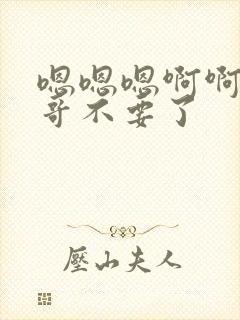 嗯嗯嗯啊啊
哥不要了
壓山夫人